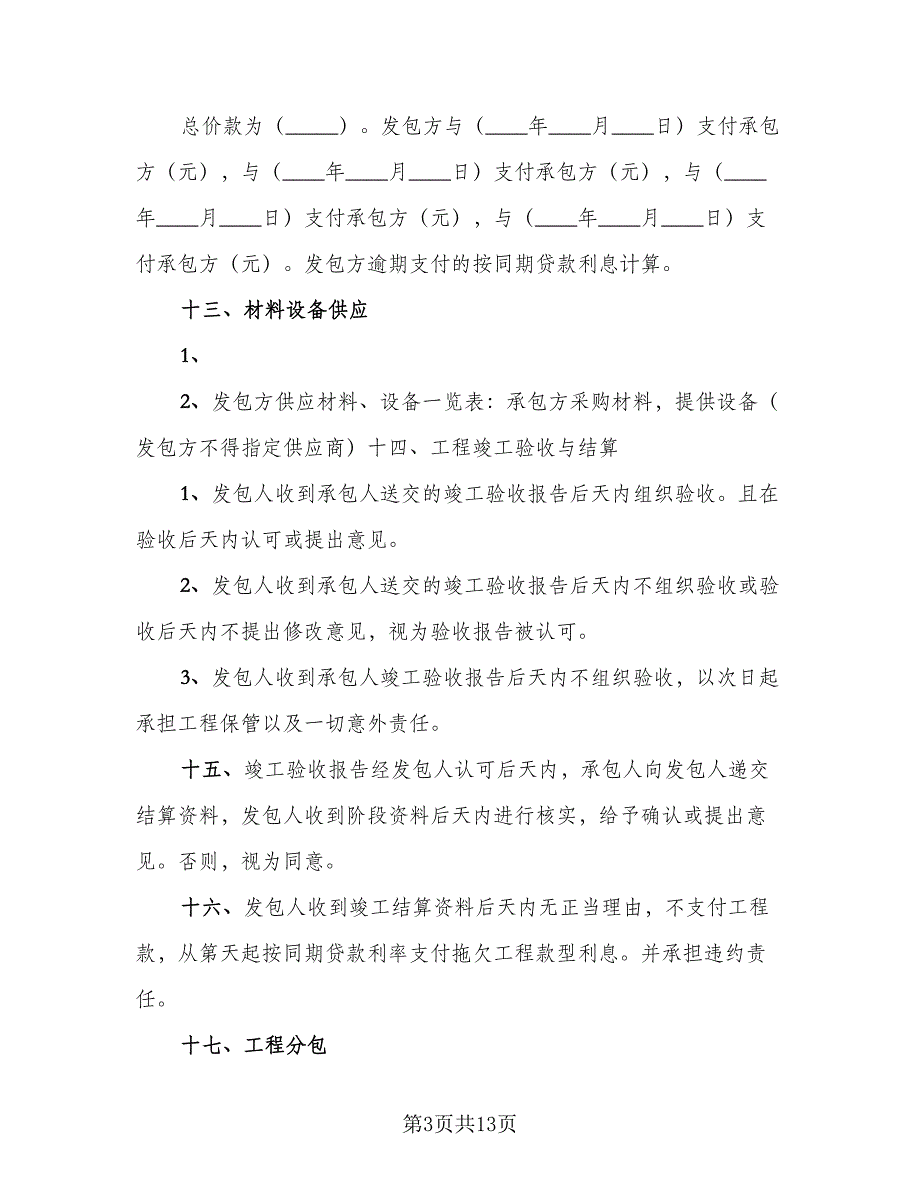 总价款为（_____）。发包方与（____年____月____日）支付承包
方（元），与（____年____月____日）支付承包方（元），与（____
年____月____日）支付承包方（元），与（____年____月____日）支
付承包方（元）。发包方逾期支付的按同期贷款利息计算。
十三、材料设备供应
1、
2、发包方供应材料、设备一览表：承包方采购材料，提供设备（
发包方不得指定供应商）十四、工程竣工验收与结算
1、发包人收到承包人送交的竣工验收报告后天内组织验收。且在
验收后天内认可或提出意见。
2、发包人收到承包人送交的竣工验收报告后天内不组织验收或验
收后天内不提出修改意见，视为验收报告被认可。
3、发包人收到承包人竣工验收报告后天内不组织验收，以次日起
承担工程保管以及一切意外责任。
十五、竣工验收报告经发包人认可后天内，承包人向发包人递交
结算资料，发包人收到阶段资料后天内进行核实，给予确认或提出意
见。否则，视为同意。
十六、发包人收到竣工结算资料后天内无正当理由，不支付工程
款，从第天起按同期贷款利率支付拖欠工程款型利息。并承担违约责
任。
十七、工程分包
第3页共13页